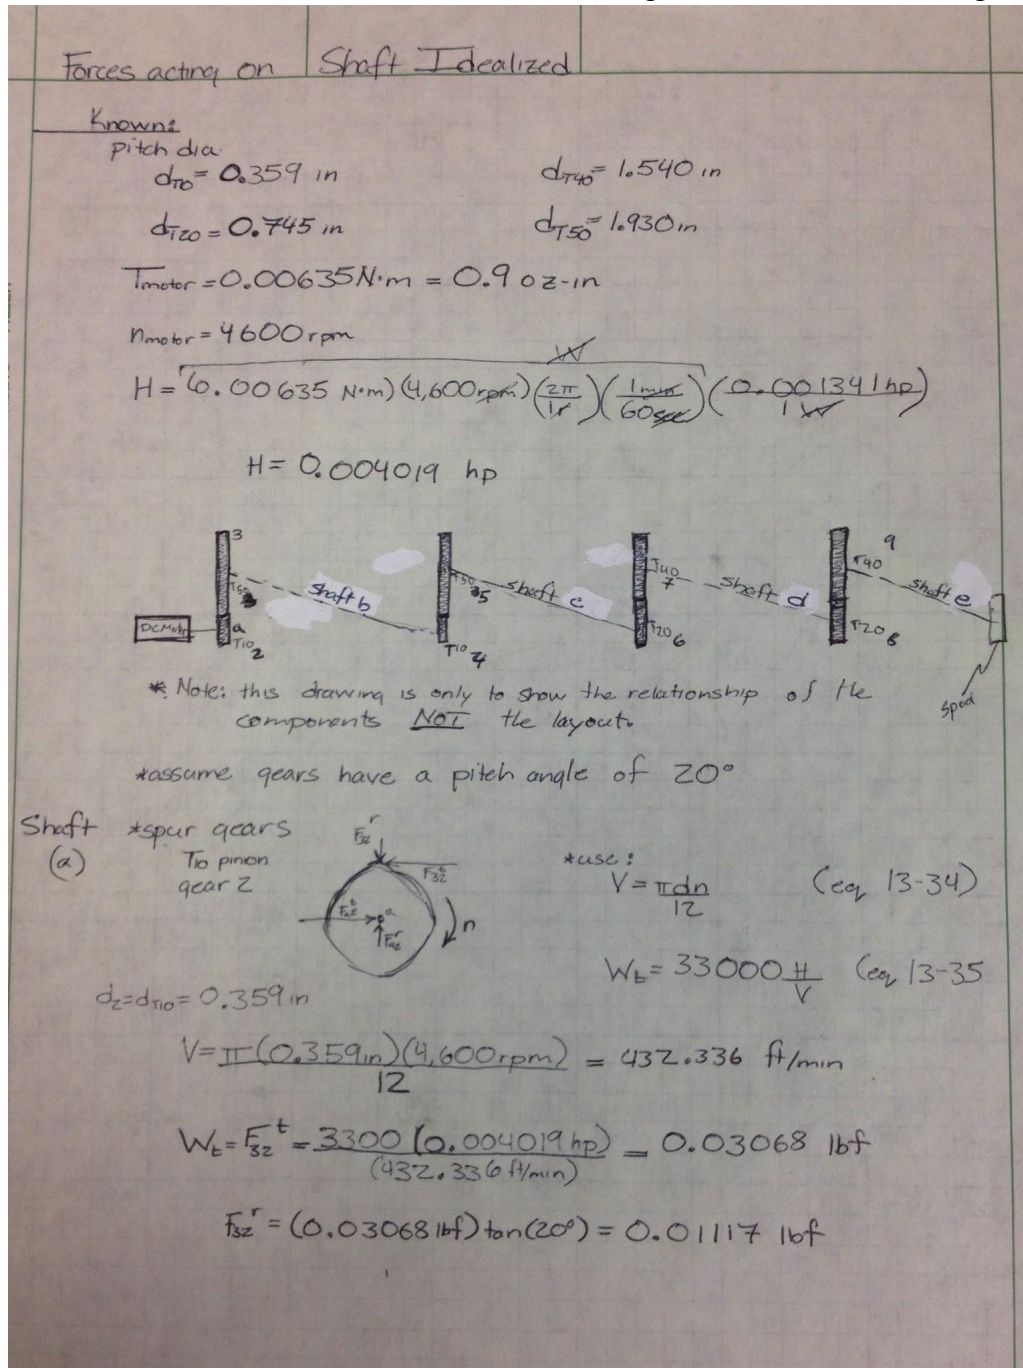 Forces acting on Shaft Idealized
Known:
pitch dia.
dT10 = 0.359 in dT40 = 1.540 in
dT20 = 0.745 in dT50 = 1.930 in
Tmotor = 0.00635 N·m = 0.9 oz-in
nmotor = 4600 rpm
W
H = (0.00635 N·m)(4,600 rpm)(2π/1r)(1min/60sec)(0.001341hp/1W)
H = 0.004019 hp
3 9
T50 T50 5 T40 7 T40
shaft b shaft c shaft d shaft e
DC Motor a T10 2 T10 4 T20 6 T20 8
spool
* Note: this drawing is only to show the relationship of the
components NOT the layout.
*assume gears have a pitch angle of 20°
Shaft *spur gears
(a) T10 pinion
gear 2
F32r
F32t
Fa2t a
Fa2r n
*use:
V = πdn/12 (eq 13-34)
Wt = 33000 H/V (eq 13-35
d2 = dT10 = 0.359 in
V = π(0.359in)(4,600rpm)/12 = 432.336 ft/min
Wt = F32t = 3300 (0.004019 hp)/(432.336 ft/min) = 0.03068 lbf
F32r = (0.03068 lbf) tan(20°) = 0.01117 lbf